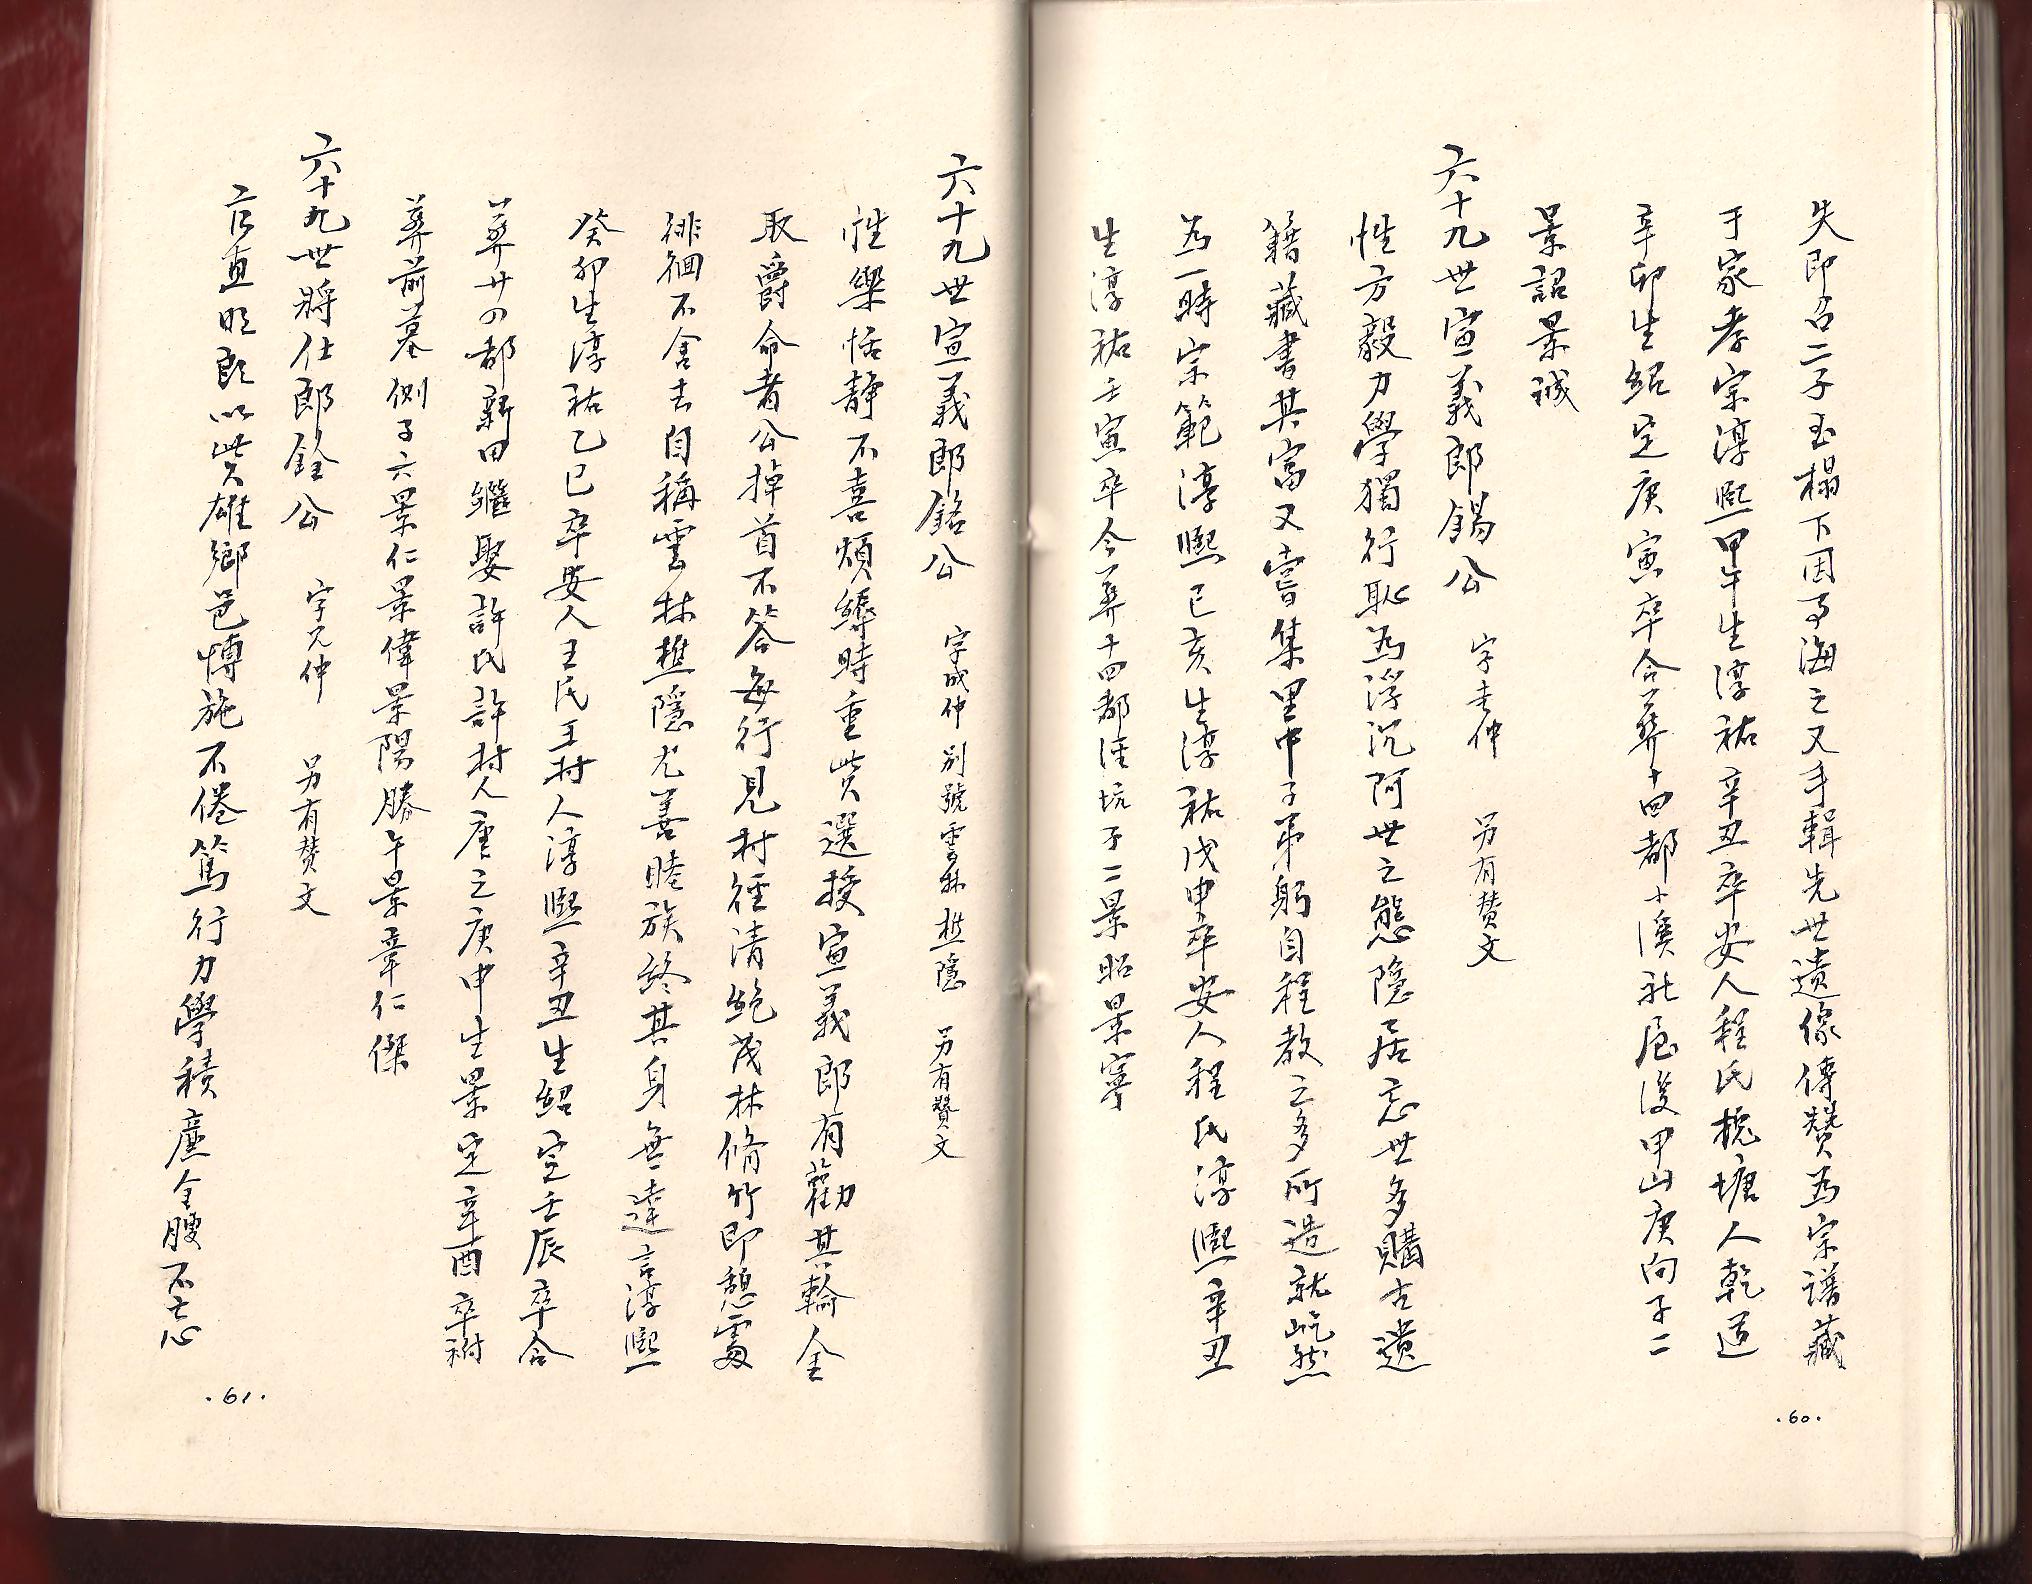 失即召二子至榻下因事誨之又手輯先世遺像傳贊為宗譜藏
于家孝宗淳熙甲午生淳祐辛丑卒安人程氏槐塘人乾道
辛卯生紹定庚寅卒合葬十四都小溪社屋後甲山庚向子二
景詔景誠
六十九世宣義郎錫公 字 仲 另有贊文
性方毅力學獨行恥為浮沉阿世之態隱居忘世多購古遺
籍藏書其富又嘗集里中子弟躬自程教之多所造就屹然
為一時宗範淳熙已亥生淳祐戊申卒安人程氏淳熙辛丑
生淳祐壬寅卒合葬十四都 坑子二景昭景寧
·60·
六十九世宣義郎銘公 字成仲 別號雲林樵隱 另有贊文
性樂恬靜不喜煩縟時重貲選授宣義郎有勸其輸金
取爵命者公掉首不答每行見村徑清絕茂林脩竹即憩處
徘徊不舍去自稱雲林樵隱尤善睦族終其身無違言淳熙
癸卯生淳祐乙巳卒安人王氏王村人淳熙辛丑生紹定壬辰卒合
葬廿四都新田繼娶許氏許村人唐之庚申生景定辛酉卒祔
葬前墓側子六景仁景偉景陽勝午景章仁傑
六十九世將仕郎銓公 字元仲 另有贊文
官直 郎以貲雄鄉邑博施不倦篤行力學積 金 不忘
·61·